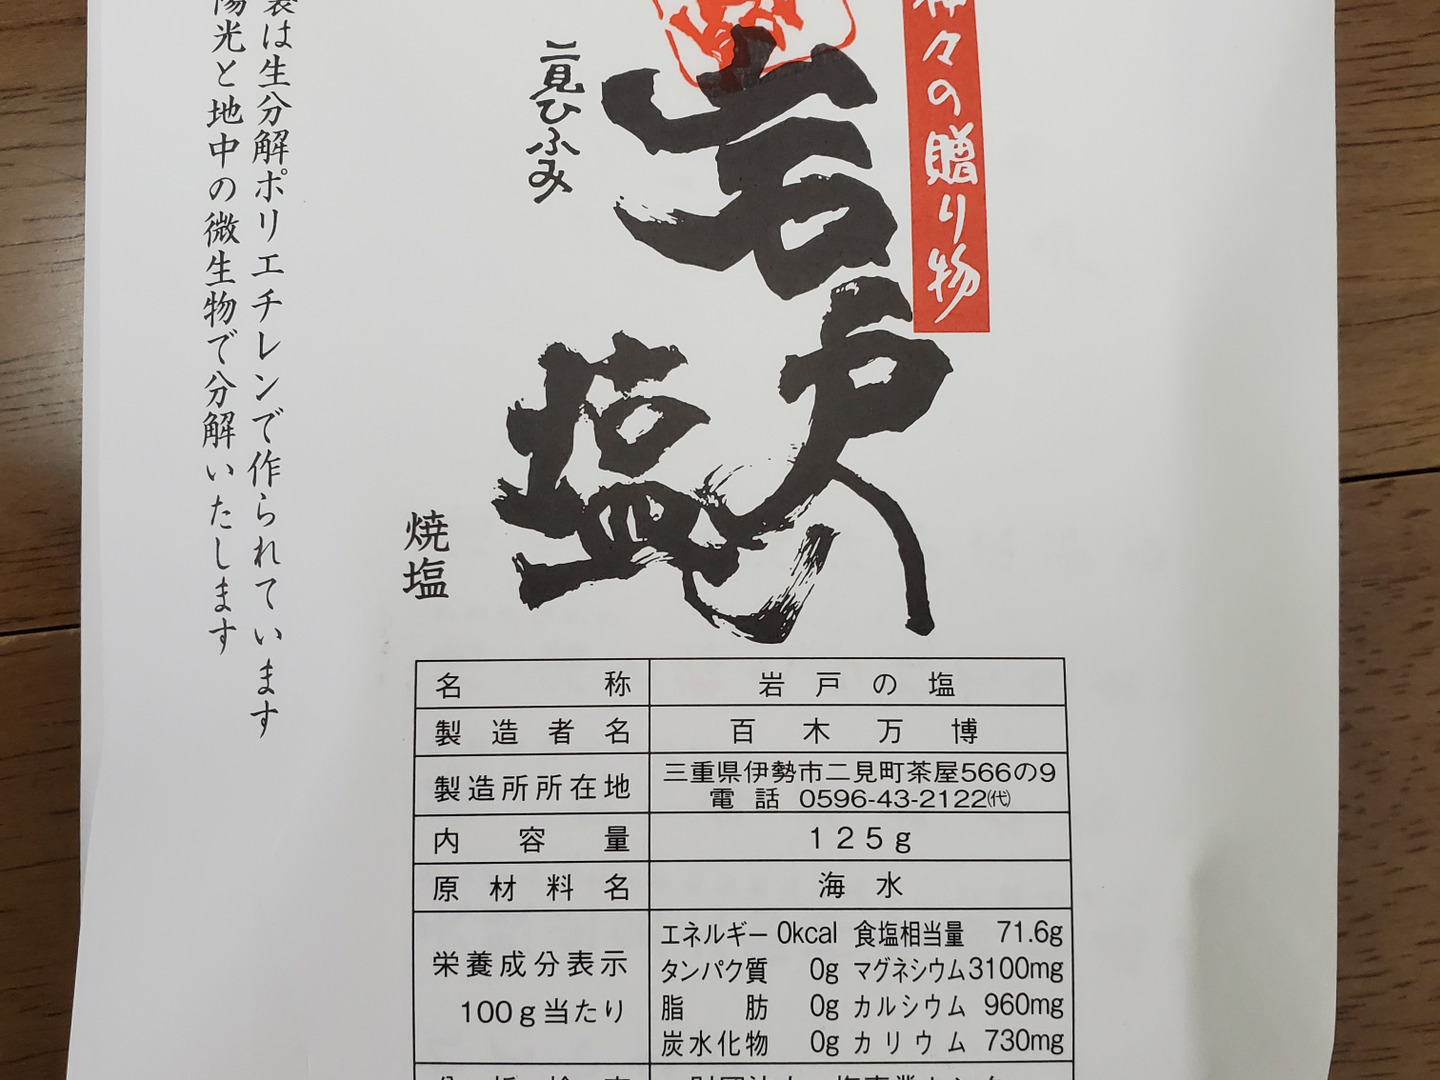 神々の贈り物
岩戸
塩
二見ひふみ
焼塩
袋は生分解ポリエチレンで作られています
陽光と地中の微生物で分解いたします
名称 岩戸の塩
製造者名 百木万博
製造所所在地 三重県伊勢市二見町茶屋566の9
電話 0596-43-2122㈹
内容量 125g
原材料名 海水
栄養成分表示
100g当たり
エネルギー 0kcal 食塩相当量 71.6g
タンパク質 0g マグネシウム 3100mg
脂肪 0g カルシウム 960mg
炭水化物 0g カリウム 730mg